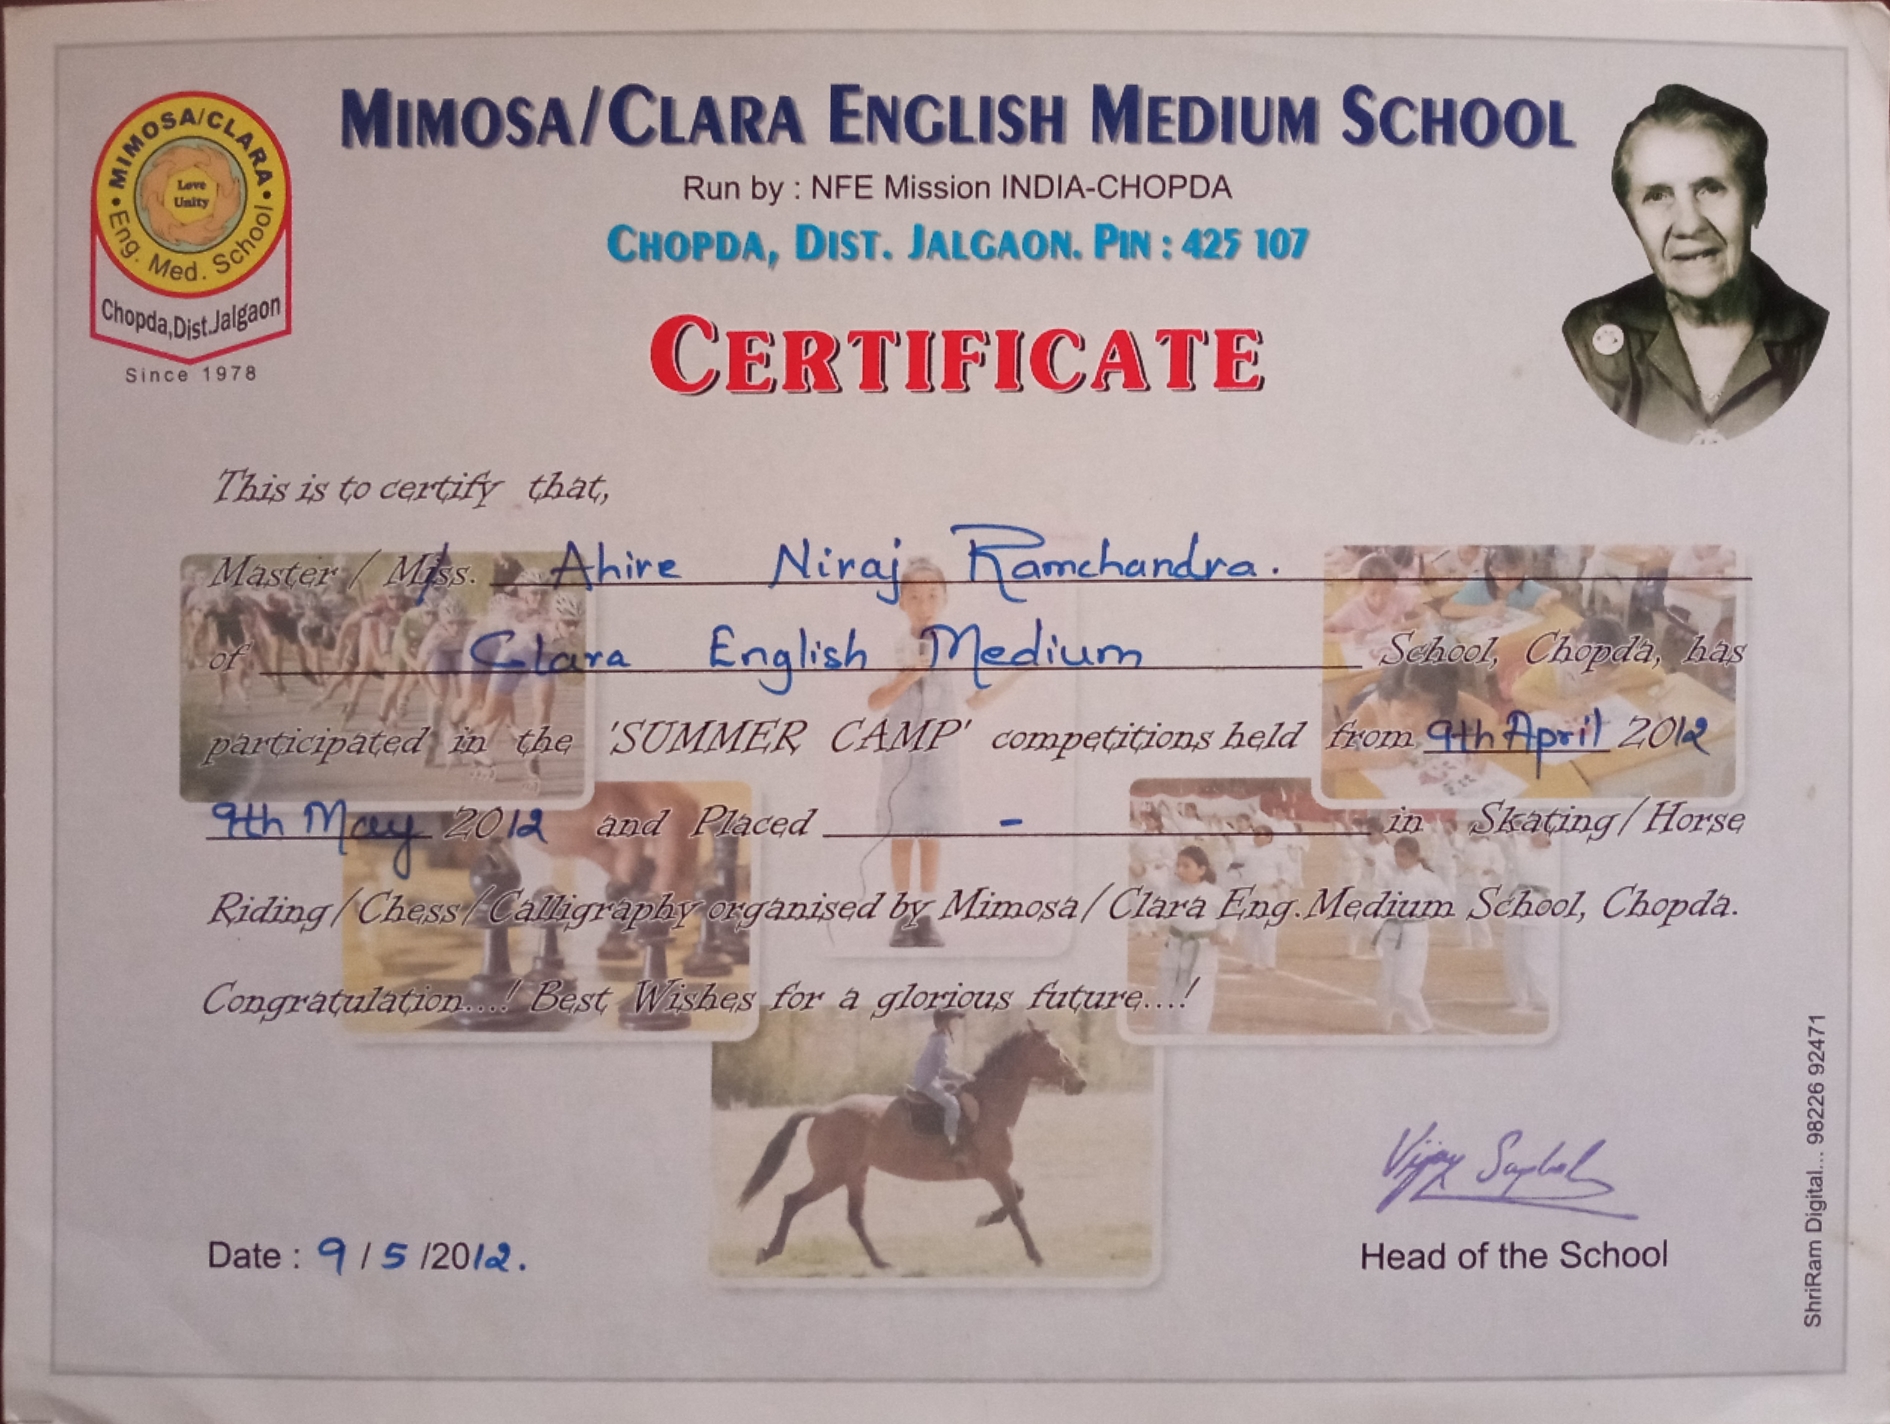 MIMOSA/CLARA
Love
Unity
Eng. Med. School
Chopda,Dist.Jalgaon
Since 1978
MIMOSA/CLARA ENGLISH MEDIUM SCHOOL
Run by : NFE Mission INDIA-CHOPDA
CHOPDA, DIST. JALGAON. PIN : 425 107
CERTIFICATE
This is to certify that,
Master / Miss. Ahire Niraj Ramchandra.
of Clara English Medium School, Chopda, has
participated in the 'SUMMER CAMP' competitions held from 9th April 2012
9th May 2012 and Placed - in Skating/Horse
Riding/Chess/Calligraphy organised by Mimosa/Clara Eng.Medium School, Chopda.
Congratulation....! Best Wishes for a glorious future....!
Date : 9 / 5 /2012.
Vijay
Head of the School
ShriRam Digital... 98226 92471